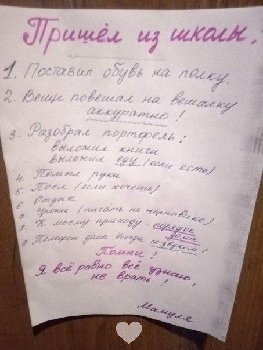 Пришёл из школы:
1. Поставил обувь на полку.
2. Вещи повешал на вешалку
аккуратно!
3. Разобрал портфель:
выложил книги
выложил еду (если есть)
4 Помыл руки
5 Поел (если хочешь)
6 Отдых
7 Уроки (писать на черновике)
8. К моему приходу - порядок
дома
9. Телефон дома всегда со звуком!
Помни!
Я всё равно всё узнаю,
не врать!
Мамуля